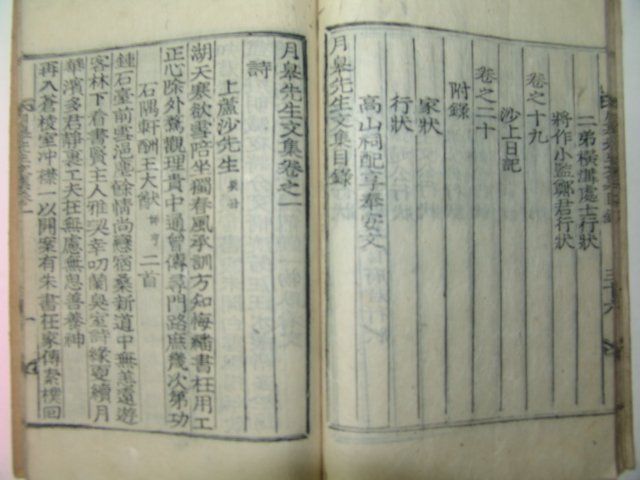 二弟橫溝處士行狀
將作小監鄭君行狀
卷之十九
沙上日記
卷之二十
附錄
家狀
行狀
高山祠配享奉安文
月皐先生文集目錄
月皐先生文集卷之一
詩
上蘆沙先生
湖天寒欲雪陪坐獨春風承訓方知悔繙書在用工
正心除外鶩觀理貴中通曾傳尋門路庶幾次第功
石隅軒酬王大猷 二首
鍾石臺前雪浥塵餘情尚戀宿桑新道中無恙還遊
客林下看書賢主人雅契幸叨蘭臭室詩緣更續月
華濱多君靜裏工夫在無慮無思善養神
再入蒼稜室冲襟一以開案有朱書在家傳素樸回